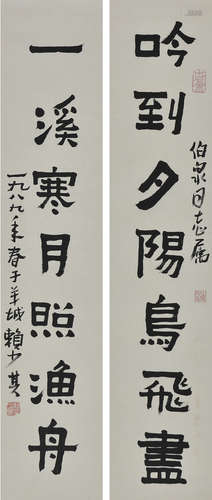 吟到夕陽鳥飛盡
伯泉同志属
一溪寒月照漁舟
一九八九年春于羊城賴少其